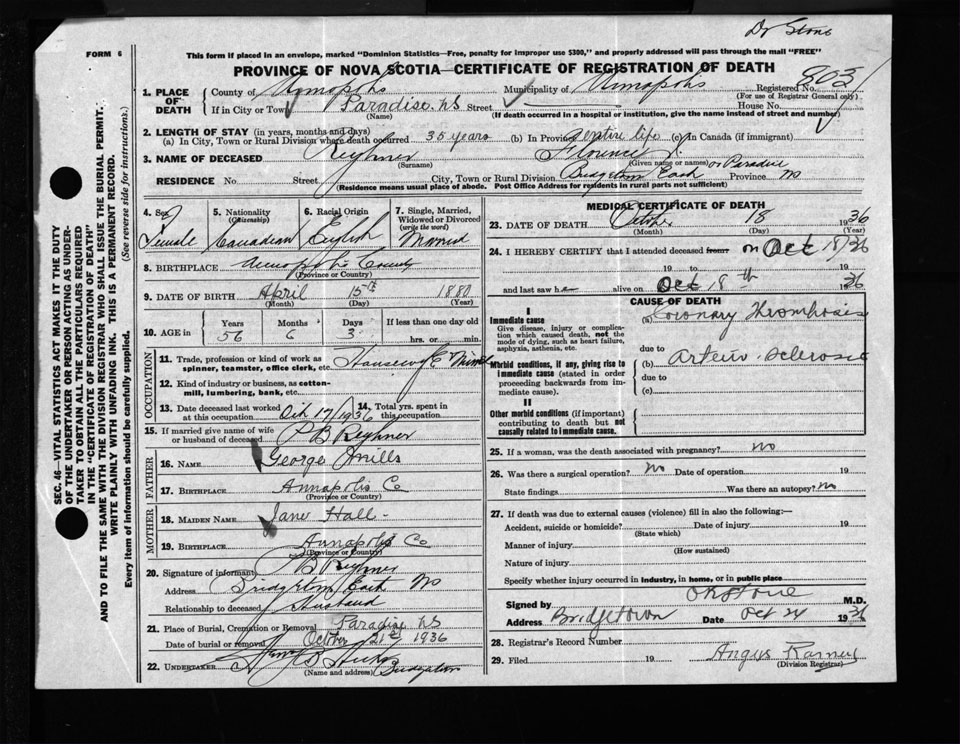 Dr Stone
FORM 6
This form if placed in an envelope, marked "Dominion Statistics—Free, penalty for improper use $300," and properly addressed will pass through the mail "FREE"
PROVINCE OF NOVA SCOTIA—CERTIFICATE OF REGISTRATION OF DEATH
1. PLACE OF DEATH County of Annapolis Municipality of Annapolis Registered No. 803
(For use of Registrar General only)
If in City or Town Paradise NS Street House No.
(Name) (If death occurred in a hospital or institution, give the name instead of street and number)
2. LENGTH OF STAY (in years, months and days)
(a) In City, Town or Rural Division where death occurred 35 years (b) In Province entire life (c) In Canada (if immigrant)
3. NAME OF DECEASED Florence
(Surname) (Given name or names) or Paradise
RESIDENCE No. Street City, Town or Rural Division East Province NS
(Residence means usual place of abode. Post Office Address for residents in rural parts not sufficient)
4. Sex Female
5. Nationality (Citizenship) Canadian
6. Racial Origin English
7. Single, Married, Widowed or Divorced (write the word) Married
8. BIRTHPLACE Annapolis County
(Province or Country)
9. DATE OF BIRTH April 15th 1880
(Month) (Day) (Year)
10. AGE in Years Months Days If less than one day old
56 6 3 hrs. or min.
OCCUPATION
11. Trade, profession or kind of work as spinner, teamster, office clerk, etc. Housewife
12. Kind of industry or business, as cotton-mill, lumbering, bank, etc.
13. Date deceased last worked at this occupation Oct 17/1936 14. Total yrs. spent in this occupation
15. If married give name of wife or husband of deceased P B Reyhner
FATHER
16. NAME George Mills
17. BIRTHPLACE Annapolis Co
(Province or Country)
MOTHER
18. MAIDEN NAME Jane Hall
19. BIRTHPLACE Annapolis Co
(Province or Country)
20. Signature of informant P B Reyhner
Address East NS
Relationship to deceased Husband
21. Place of Burial, Cremation or Removal Paradise NS
Date of burial or removal October 21st 1936
22. UNDERTAKER
(Name and address)
MEDICAL CERTIFICATE OF DEATH
23. DATE OF DEATH 18 1936
(Month) (Day) (Year)
24. I HEREBY CERTIFY that I attended deceased from on Oct 18/36
19 to 19
and last saw h alive on Oct 18th 1936
CAUSE OF DEATH
I
Immediate cause
Give disease, injury or complication which caused death, not the mode of dying, such as heart failure, asphyxia, asthenia, etc.
(a) Coronary Thrombosis
due to
Morbid conditions, if any, giving rise to immediate cause (stated in order proceeding backwards from immediate cause).
(b) Arterio-sclerosis
due to
(c)
II
Other morbid conditions (if important) contributing to death but not causally related to immediate cause.
25. If a woman, was the death associated with pregnancy? no
26. Was there a surgical operation? no Date of operation 19
State findings Was there an autopsy? no
27. If death was due to external causes (violence) fill in also the following:—
Accident, suicide or homicide? Date of injury 19
(State which)
Manner of injury
(How sustained)
Nature of injury
Specify whether injury occurred in industry, in home, or in public place
Signed by Stone M.D.
Address Bridgetown Date Oct 24 1936
28. Registrar's Record Number
29. Filed 19 Angus
(Division Registrar)
SEC. 46—VITAL STATISTICS ACT MAKES IT THE DUTY
OF THE UNDERTAKER OR PERSON ACTING AS UNDER-
TAKER TO OBTAIN ALL THE PARTICULARS REQUIRED
IN THE "CERTIFICATE OF REGISTRATION OF DEATH"
AND TO FILE THE SAME WITH THE DIVISION REGISTRAR WHO SHALL ISSUE THE BURIAL PERMIT.
WRITE PLAINLY WITH UNFADING INK. THIS IS A PERMANENT RECORD.
Every item of information should be carefully supplied. (See reverse side for instructions).